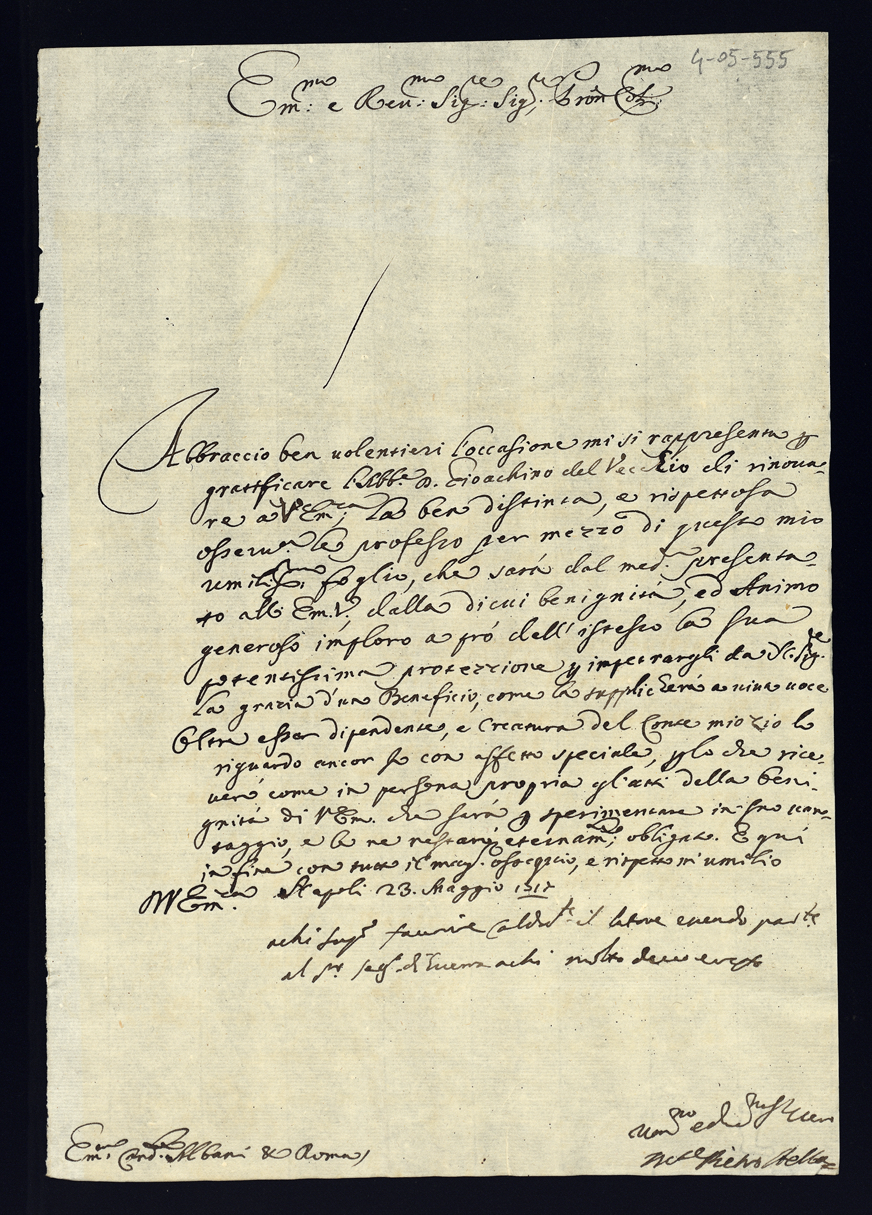 4-05-555
Em:mo e Reu:mo Sig:re Sig:re Pron Col:mo
Abbraccio ben uolentieri l'occasione mi si rappresenta p
gratificare l'Abb.e D. Gioachino del Vecchio di rinoua-
re a V. Em:za la ben distinta, e rispettosa
osseru.a le professo per mezzo di questo mio
umiliss:mo foglio, che sarà dal med.o presenta-
to all'Em.V., dalla di cui benignità, ed Animo
generoso imploro a prò dell'istesso la sua
potentissima protezzione p impetrargli da N.Sig.re
la grazia d'un Beneficio, come la supplicherà a uiua uoce
Oltre esser dipendente, e Creatura del Conte mio Zio lo
riguardo ancor Io con affetto speciale, p lo che rice-
uerò come in persona propria gl'atti della beni-
gnità di V.Em. che sarà p sperimentare in suo uan-
taggio, e le ne restarò eternam:te obligato. E quì
in fine con tutto il magg. ossequio, e rispetto m'umilio
Di V. Em:za Napoli 23. Maggio 1717
achi supp.o fauorire il latore
al di Guerra achi molto deuo
Um:mo ed
Pietro
Em:mo Card. Albani &c Roma